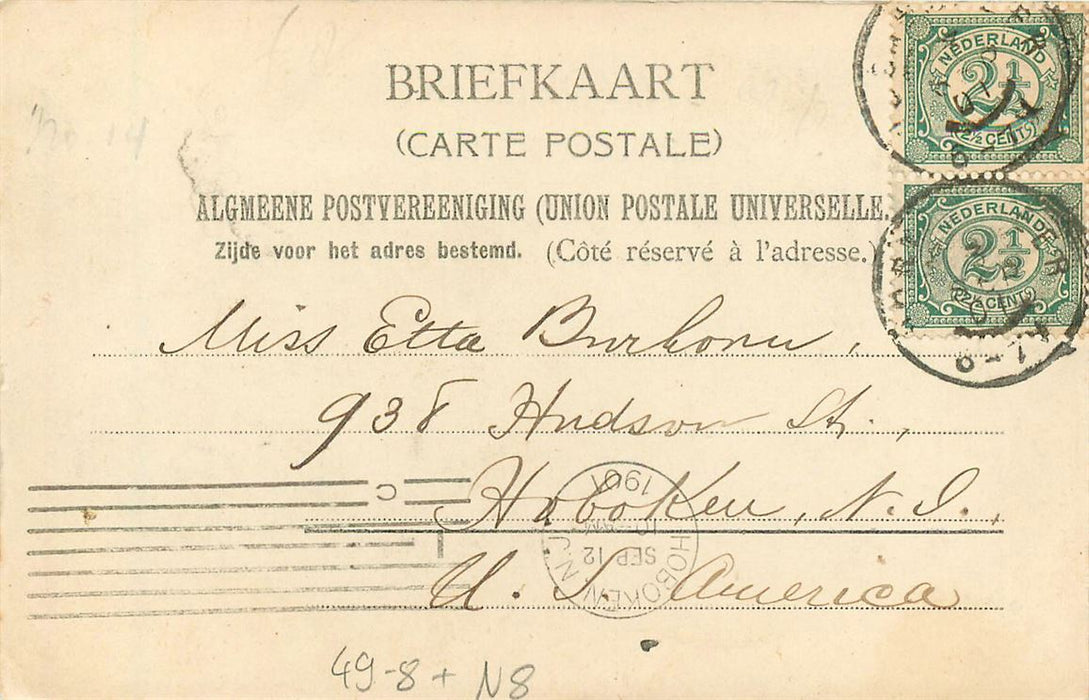 BRIEFKAART
(CARTE POSTALE)
ALGMEENE POSTVEREENIGING (UNION POSTALE UNIVERSELLE.
Zijde voor het adres bestemd. (Côté réservé à l'adresse.)
NEDERLAND
2½
(2½ CENT)
NEDERLAND
2½
(2½ CENT)
Miss Etta Burhorn,
938 Hudson St.,
Hoboken, N. J.,
U. S. America
C
HOBOKEN N.J.
SEP 12
1901
No. 14
49-8+ N8